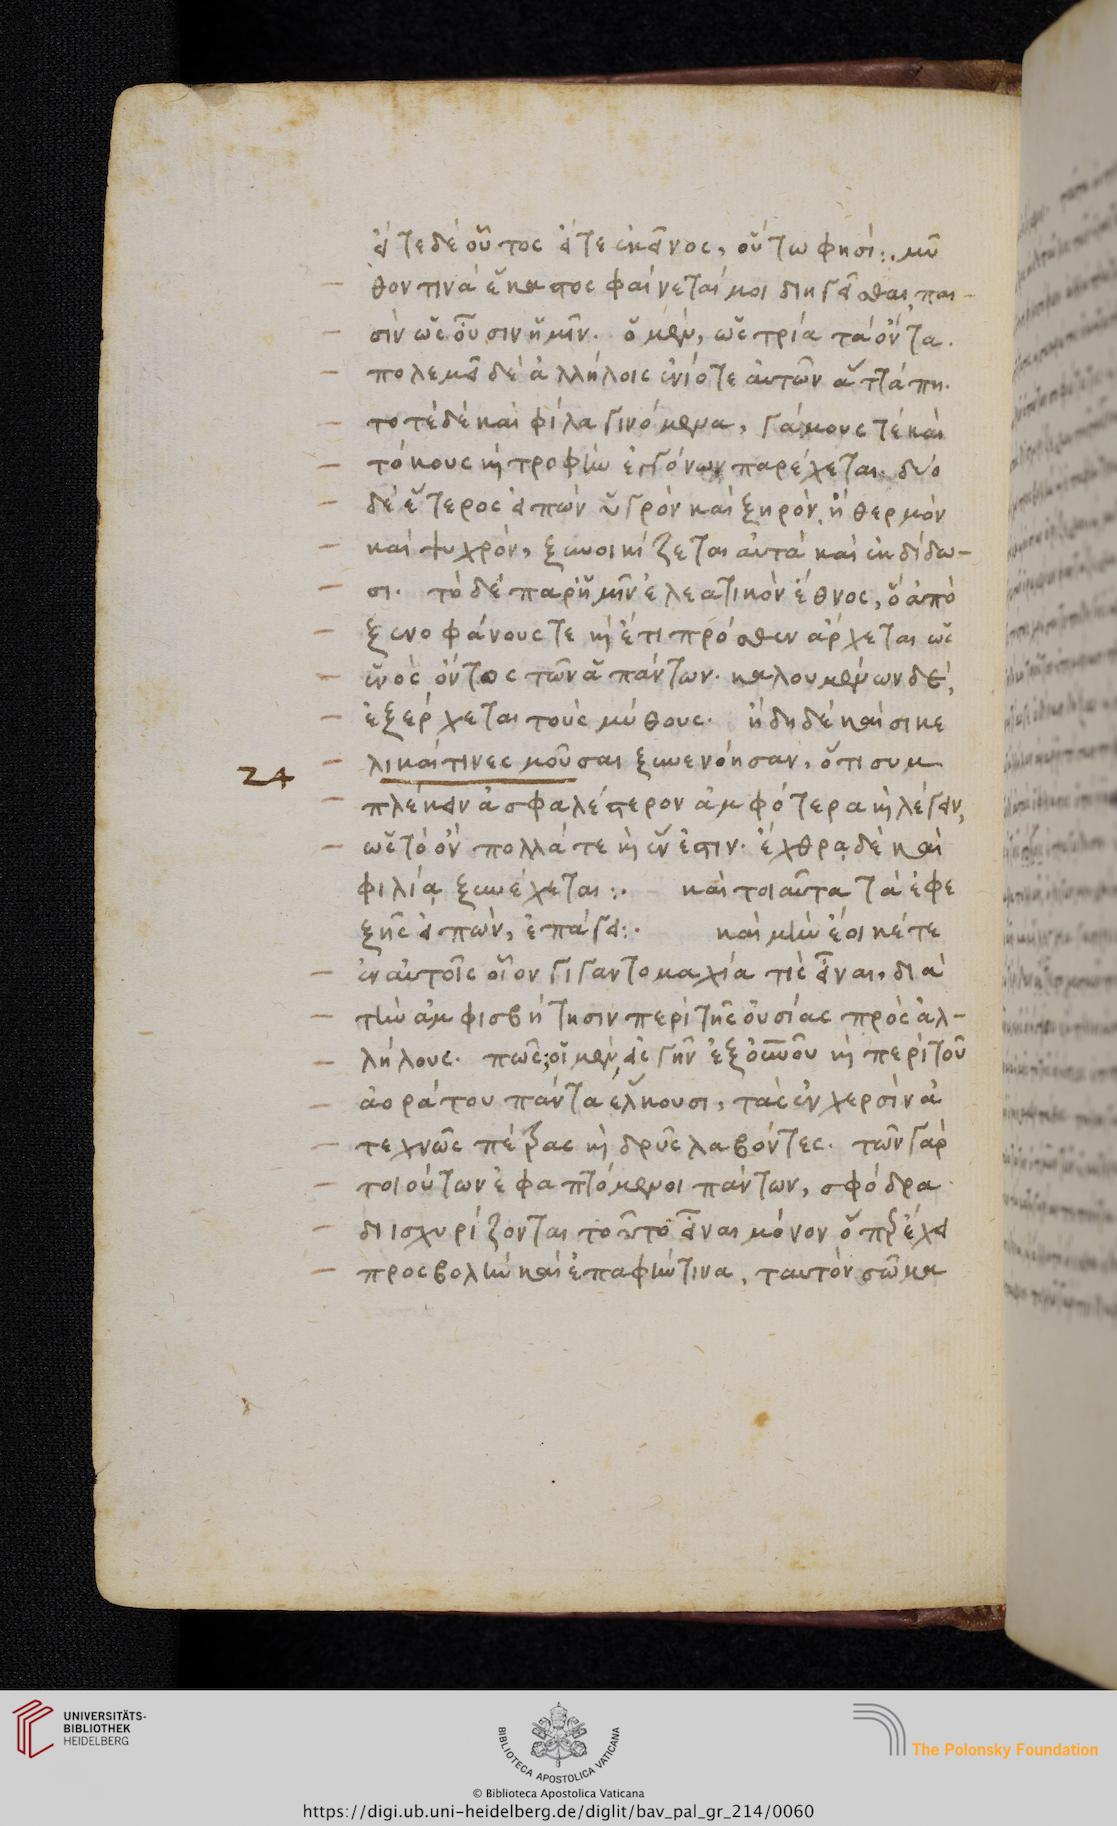 εἴτε δὲ οὗτος εἴτε ἐκεῖνος, οὕτω φησί:. μῦ
θον τινὰ ἕκαστος φαίνεταί μοι διηγεῖσθαι παι-
σὶν ὡς οὖσιν ἡμῖν. ὁ μὲν, ὡς τρία τὰ ὄντα.
πολεμεῖ δὲ ἀλλήλοις ἐνίοτε αὐτῶν ἄττα πη.
τοτὲ δὲ καὶ φίλα γινόμενα, γάμους τὲ καὶ
τόκους καὶ τροφὴν ἐκγόνων παρέχεται. δύο
δὲ ἕτερος εἰπὼν ὑγρὸν καὶ ξηρὸν, ἢ θερμὸν
καὶ ψυχρὸν, ξυνοικίζεται αὐτὰ καὶ ἐκδίδω-
σι. τὸ δὲ παρ' ἡμῖν ἐλεατικὸν ἔθνος, ὃ ἀπὸ
ξενοφάνους τε καὶ ἔτι πρόσθεν ἀρχεται ὡς
ἑνὸς ὄντος τῶν ἁπάντων. καλουμένων δὲ,
ἐξέρχεται τοὺς μύθους. ἤδη δὲ καὶ σικε
24
λικαί τινες μοῦσαι ξυνενόησαν, ὅτι συμ
πλέκειν ἀσφαλέστερον ἀμφότερα καὶ λέγειν,
ὡς τὸ ὂν πολλά τε καὶ ἕν ἐστιν. ἔχθρᾳ δὲ καὶ
φιλίᾳ ξυνέχεται:. καὶ τοιαῦτα τὰ ἐφε
ξῆς εἰπὼν, ἐπάγει:. καὶ μὴν ἔοικέ τε
ἐν αὐτοῖς οἷον γιγαντομαχία τὶς εἶναι, διὰ
τὴν ἀμφισβήτησιν περὶ τῆς οὐσίας πρὸς ἀλ-
λήλους. πῶς; οἱ μὲν, εἰς γῆν ἐξ οὐνοῦ καὶ περὶ τοῦ
ἀοράτου πάντα ἕλκουσι, ταῖς ἐν χερσὶν ἀ
τεχνῶς πέτρας καὶ δρῦς λαβόντες. τῶν γὰρ
τοιούτων ἐφαπτόμενοι πάντων, σφόδρα
διισχυρίζονται τοῦτο εἶναι μόνον ὃ πρέχει
προσβολὴν καὶ ἐπαφήν τινα, ταυτὸν σῶμα
UNIVERSITÄTS-
BIBLIOTHEK
HEIDELBERG
BIBLIOTECA APOSTOLICA VATICANA
The Polonsky Foundation
© Biblioteca Apostolica Vaticana
https://digi.ub.uni-heidelberg.de/diglit/bav_pal_gr_214/0060